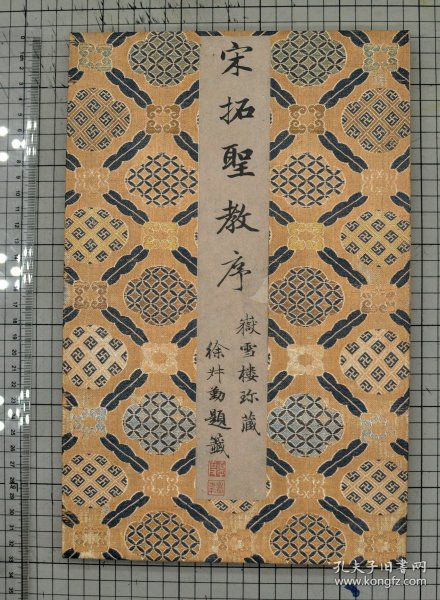 宋拓聖教序
嶽雪樓珎藏
徐
勤題籖
孔夫子旧书网
www.kongfz.com